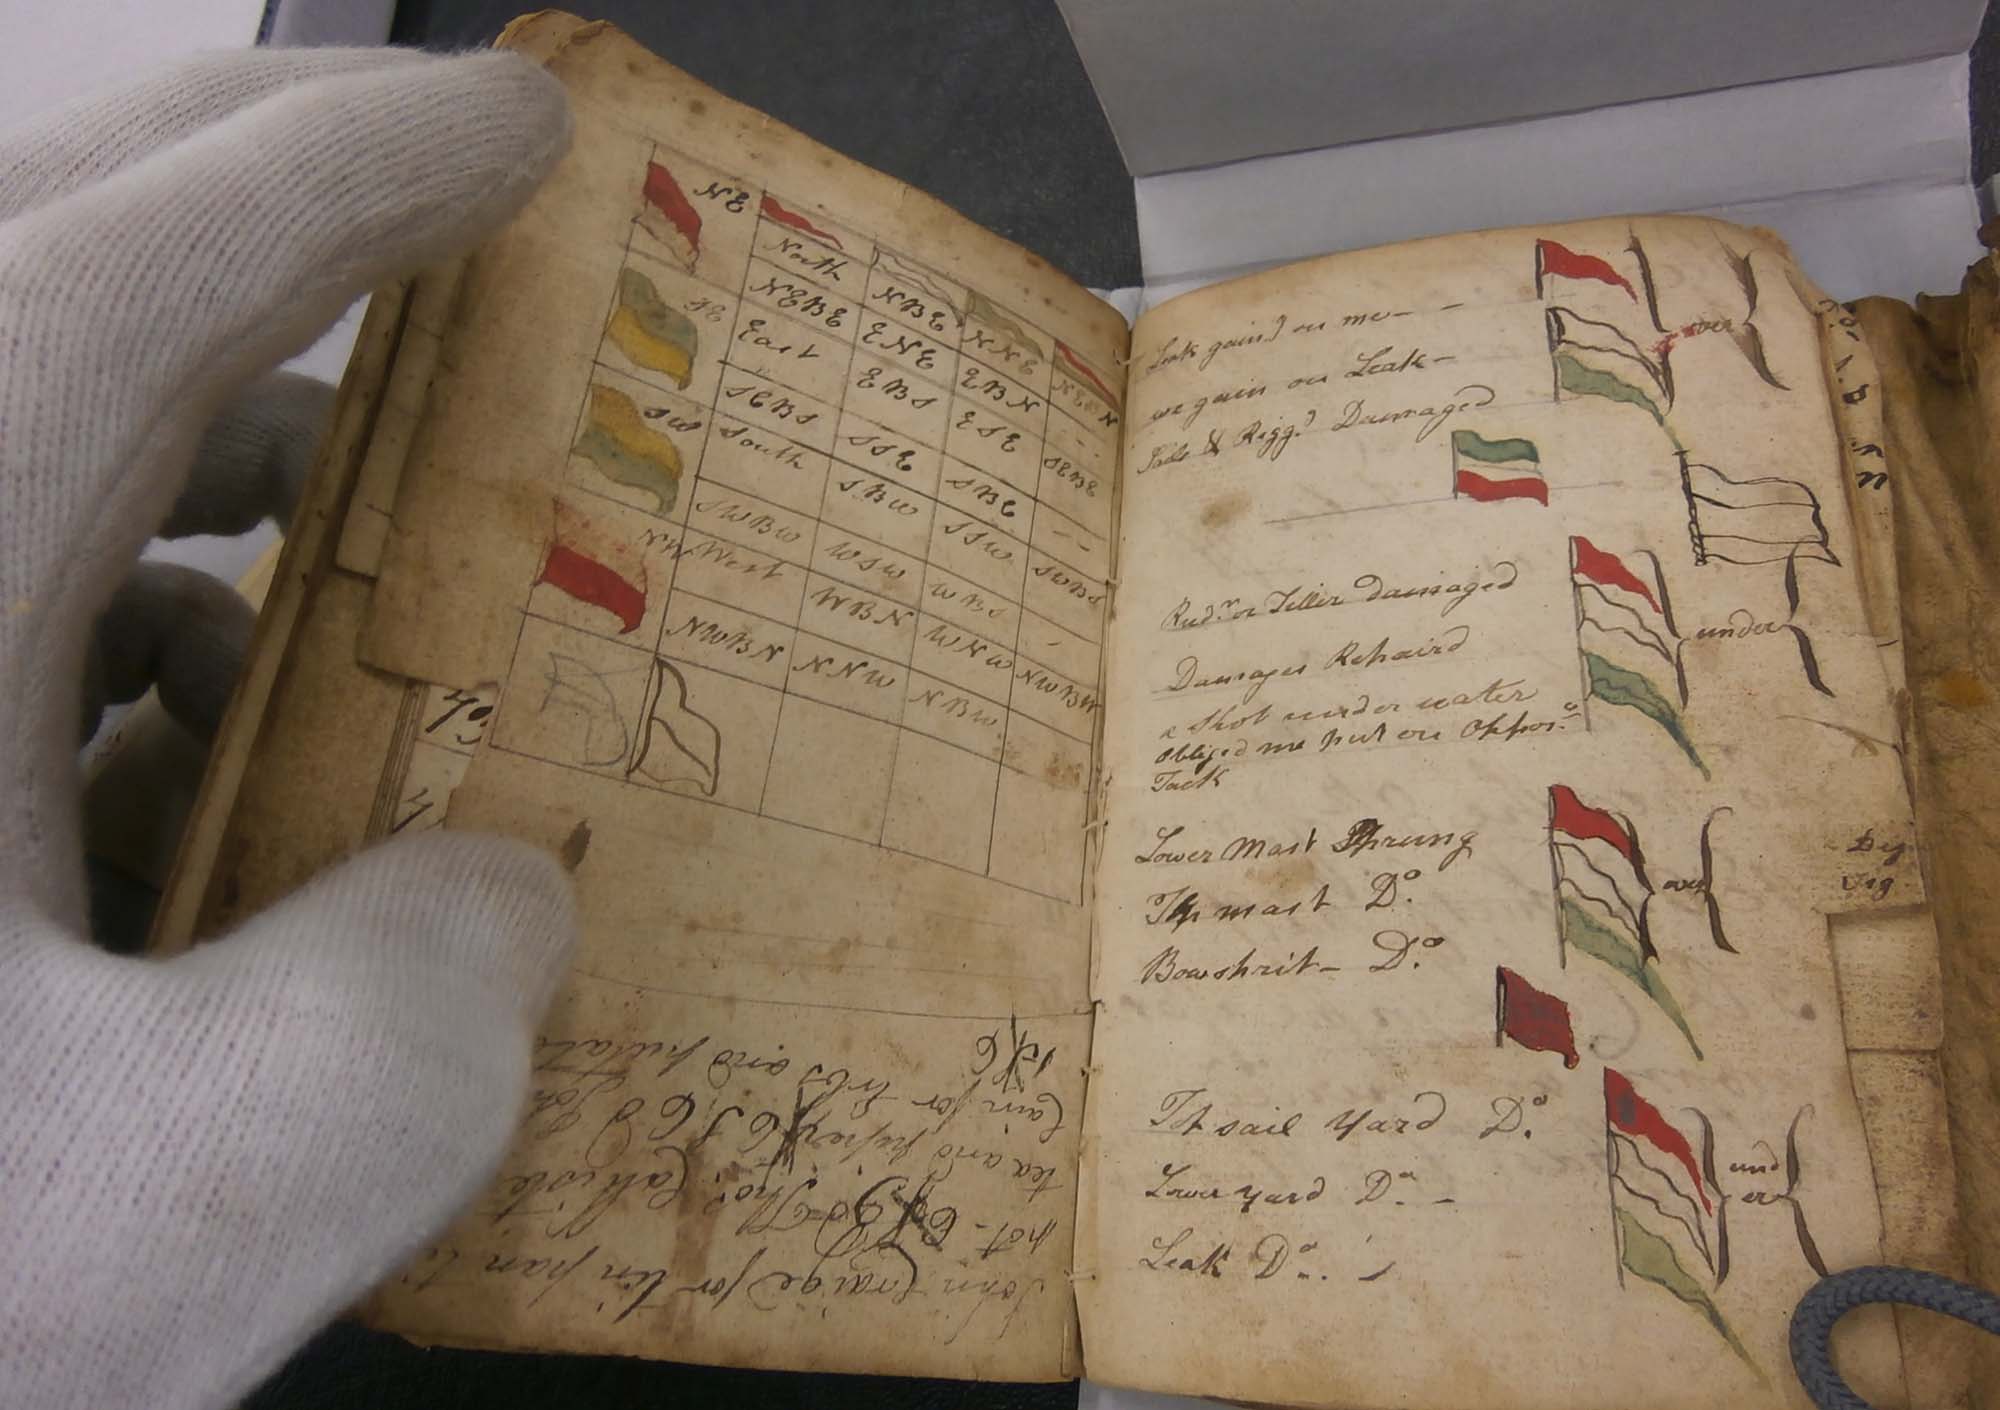 NE
North
NBE
NNE
NEBN
NEBE
ENE
EBN
--
SE
East
EBS
ESE
SEBE
SEBS
SSE
SBE
--
SW
South
SBW
SSW
SWBS
SWBW
WSW
WBS
-
NW
West
WBN
WNW
NWBW
NWBN
NNW
NBW
John Craige for tin pan
pot
tea and
Cain for
and
Leak gain.d on me - -
over
we gain on Leak -
Sails & Rigg.d Damaged
Rud.r or Tiller Damaged
under
Damages Repaird
a Shot under water
obliged me put on Oppos.e
Tack
Lower Mast Sprung
over
Tp mast D.o
Bowsprit - D.o
Tp sail Yard D.o
und
er
Lower yard D.o -
Leak D.o